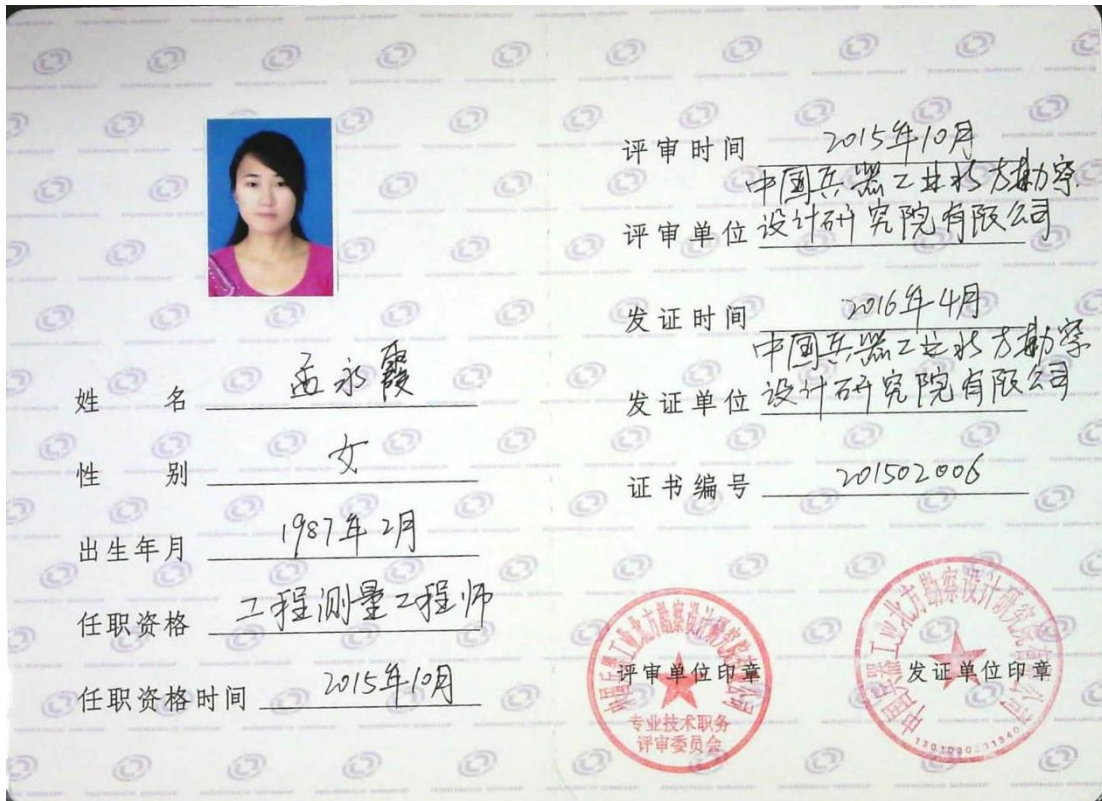 姓名 孟永霞
性别 女
出生年月 1987年2月
任职资格 工程测量工程师
任职资格时间 2015年10月
评审时间 2015年10月
中国兵器工业北方勘察
评审单位 设计研究院有限公司
发证时间 2016年4月
中国兵器工业北方勘察
发证单位 设计研究院有限公司
证书编号 201502006
中国兵器工业北方勘察设计研究院有限公司
评审单位印章
专业技术职务
评审委员会
中国兵器工业北方勘察设计研究院有限公司
发证单位印章